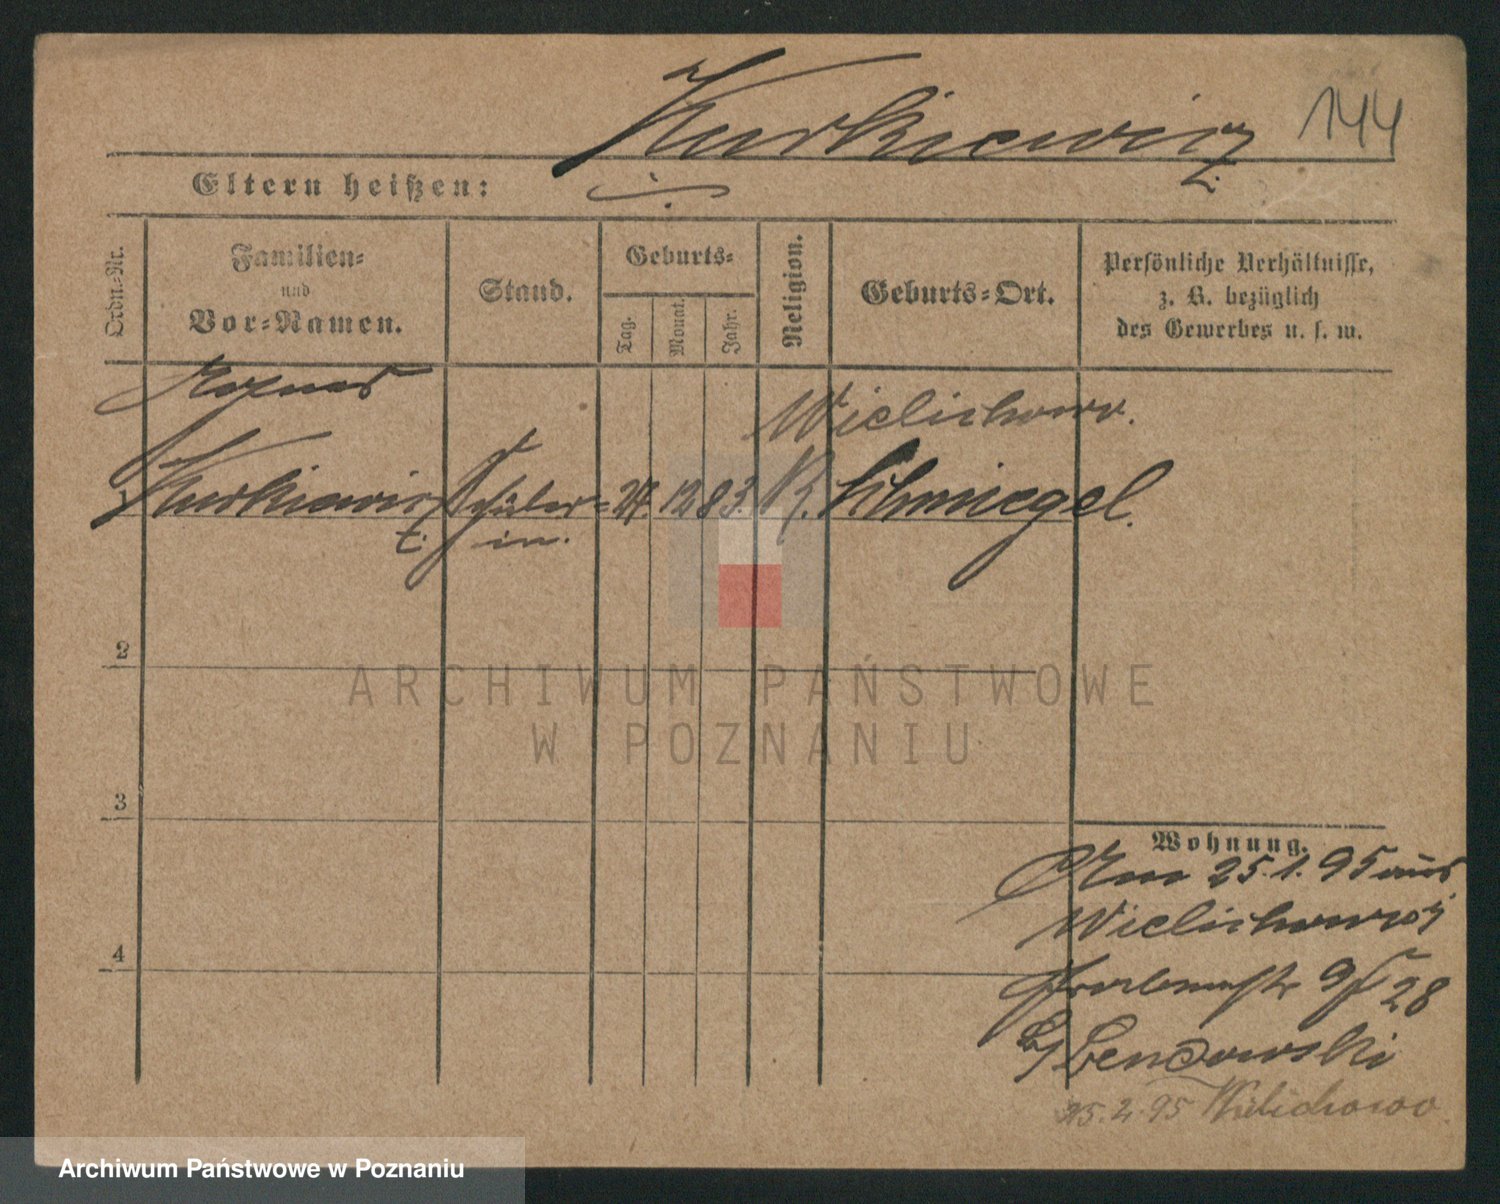 Kurkiewicz
144
Eltern heißen:
Ordn.-Nr.
Familien-
und
Vor-Namen.
Stand.
Geburts-
Tag.
Monat.
Jahr.
Religion.
Geburts-Ort.
Persönliche Verhältnisse,
z. B. bezüglich
des Gewerbes u. s. w.
Wielichowo.
1
Kurkiewicz
Schüler-
in.
24. 12 83. K. Schmiegel.
2
3
4
Wohnung.
25.1.95 aus
Wielichowo
28
b/ Cendowski
25.2.95 Wielichowo
ARCHIWUM PAŃSTWOWE
W POZNANIU
Archiwum Państwowe w Poznaniu